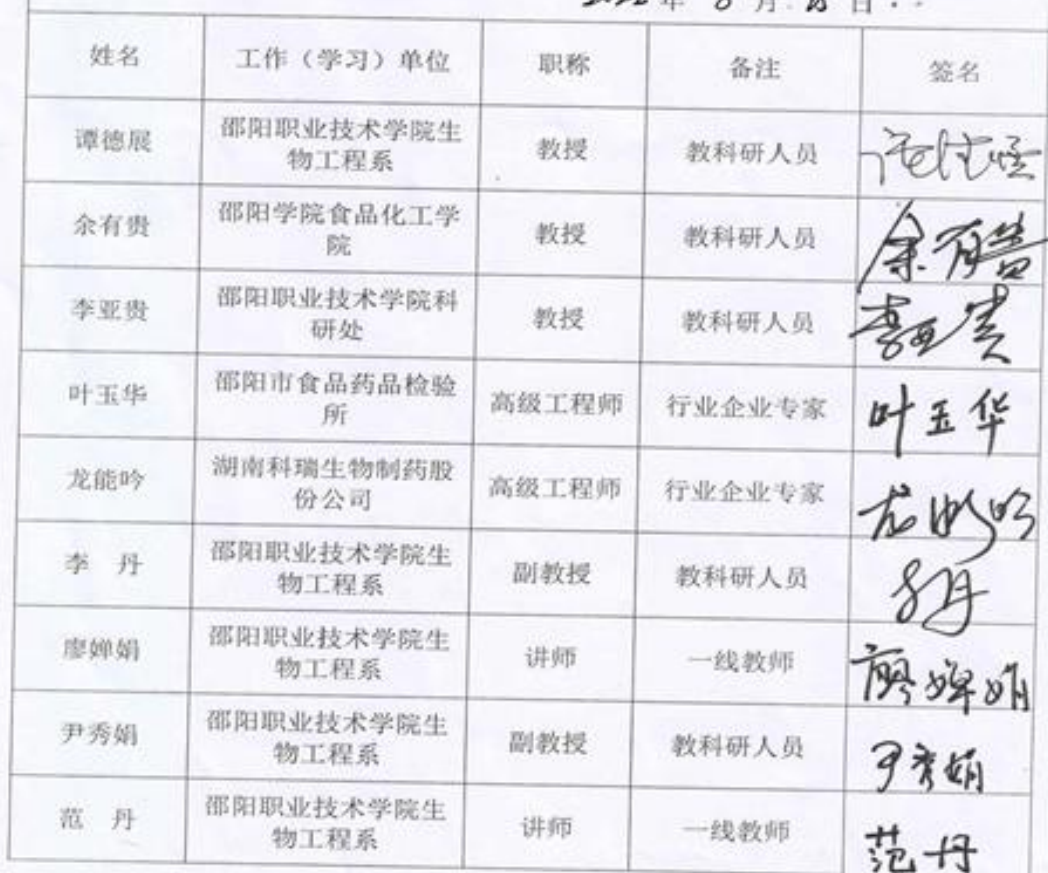 2022 年 8 月 18 日
姓名 工作（学习）单位 职称 备注 签名
谭德展 邵阳职业技术学院生
物工程系 教授 教科研人员
余有贵 邵阳学院食品化工学
院 教授 教科研人员 余有贵
李亚贵 邵阳职业技术学院科
研处 教授 教科研人员 李亚贵
叶玉华 邵阳市食品药品检验
所 高级工程师 行业企业专家 叶玉华
龙能吟 湖南科瑞生物制药股
份公司 高级工程师 行业企业专家 龙能吟
李 丹 邵阳职业技术学院生
物工程系 副教授 教科研人员 李丹
廖婵娟 邵阳职业技术学院生
物工程系 讲师 一线教师 廖婵娟
尹秀娟 邵阳职业技术学院生
物工程系 副教授 教科研人员 尹秀娟
范 丹 邵阳职业技术学院生
物工程系 讲师 一线教师 范丹